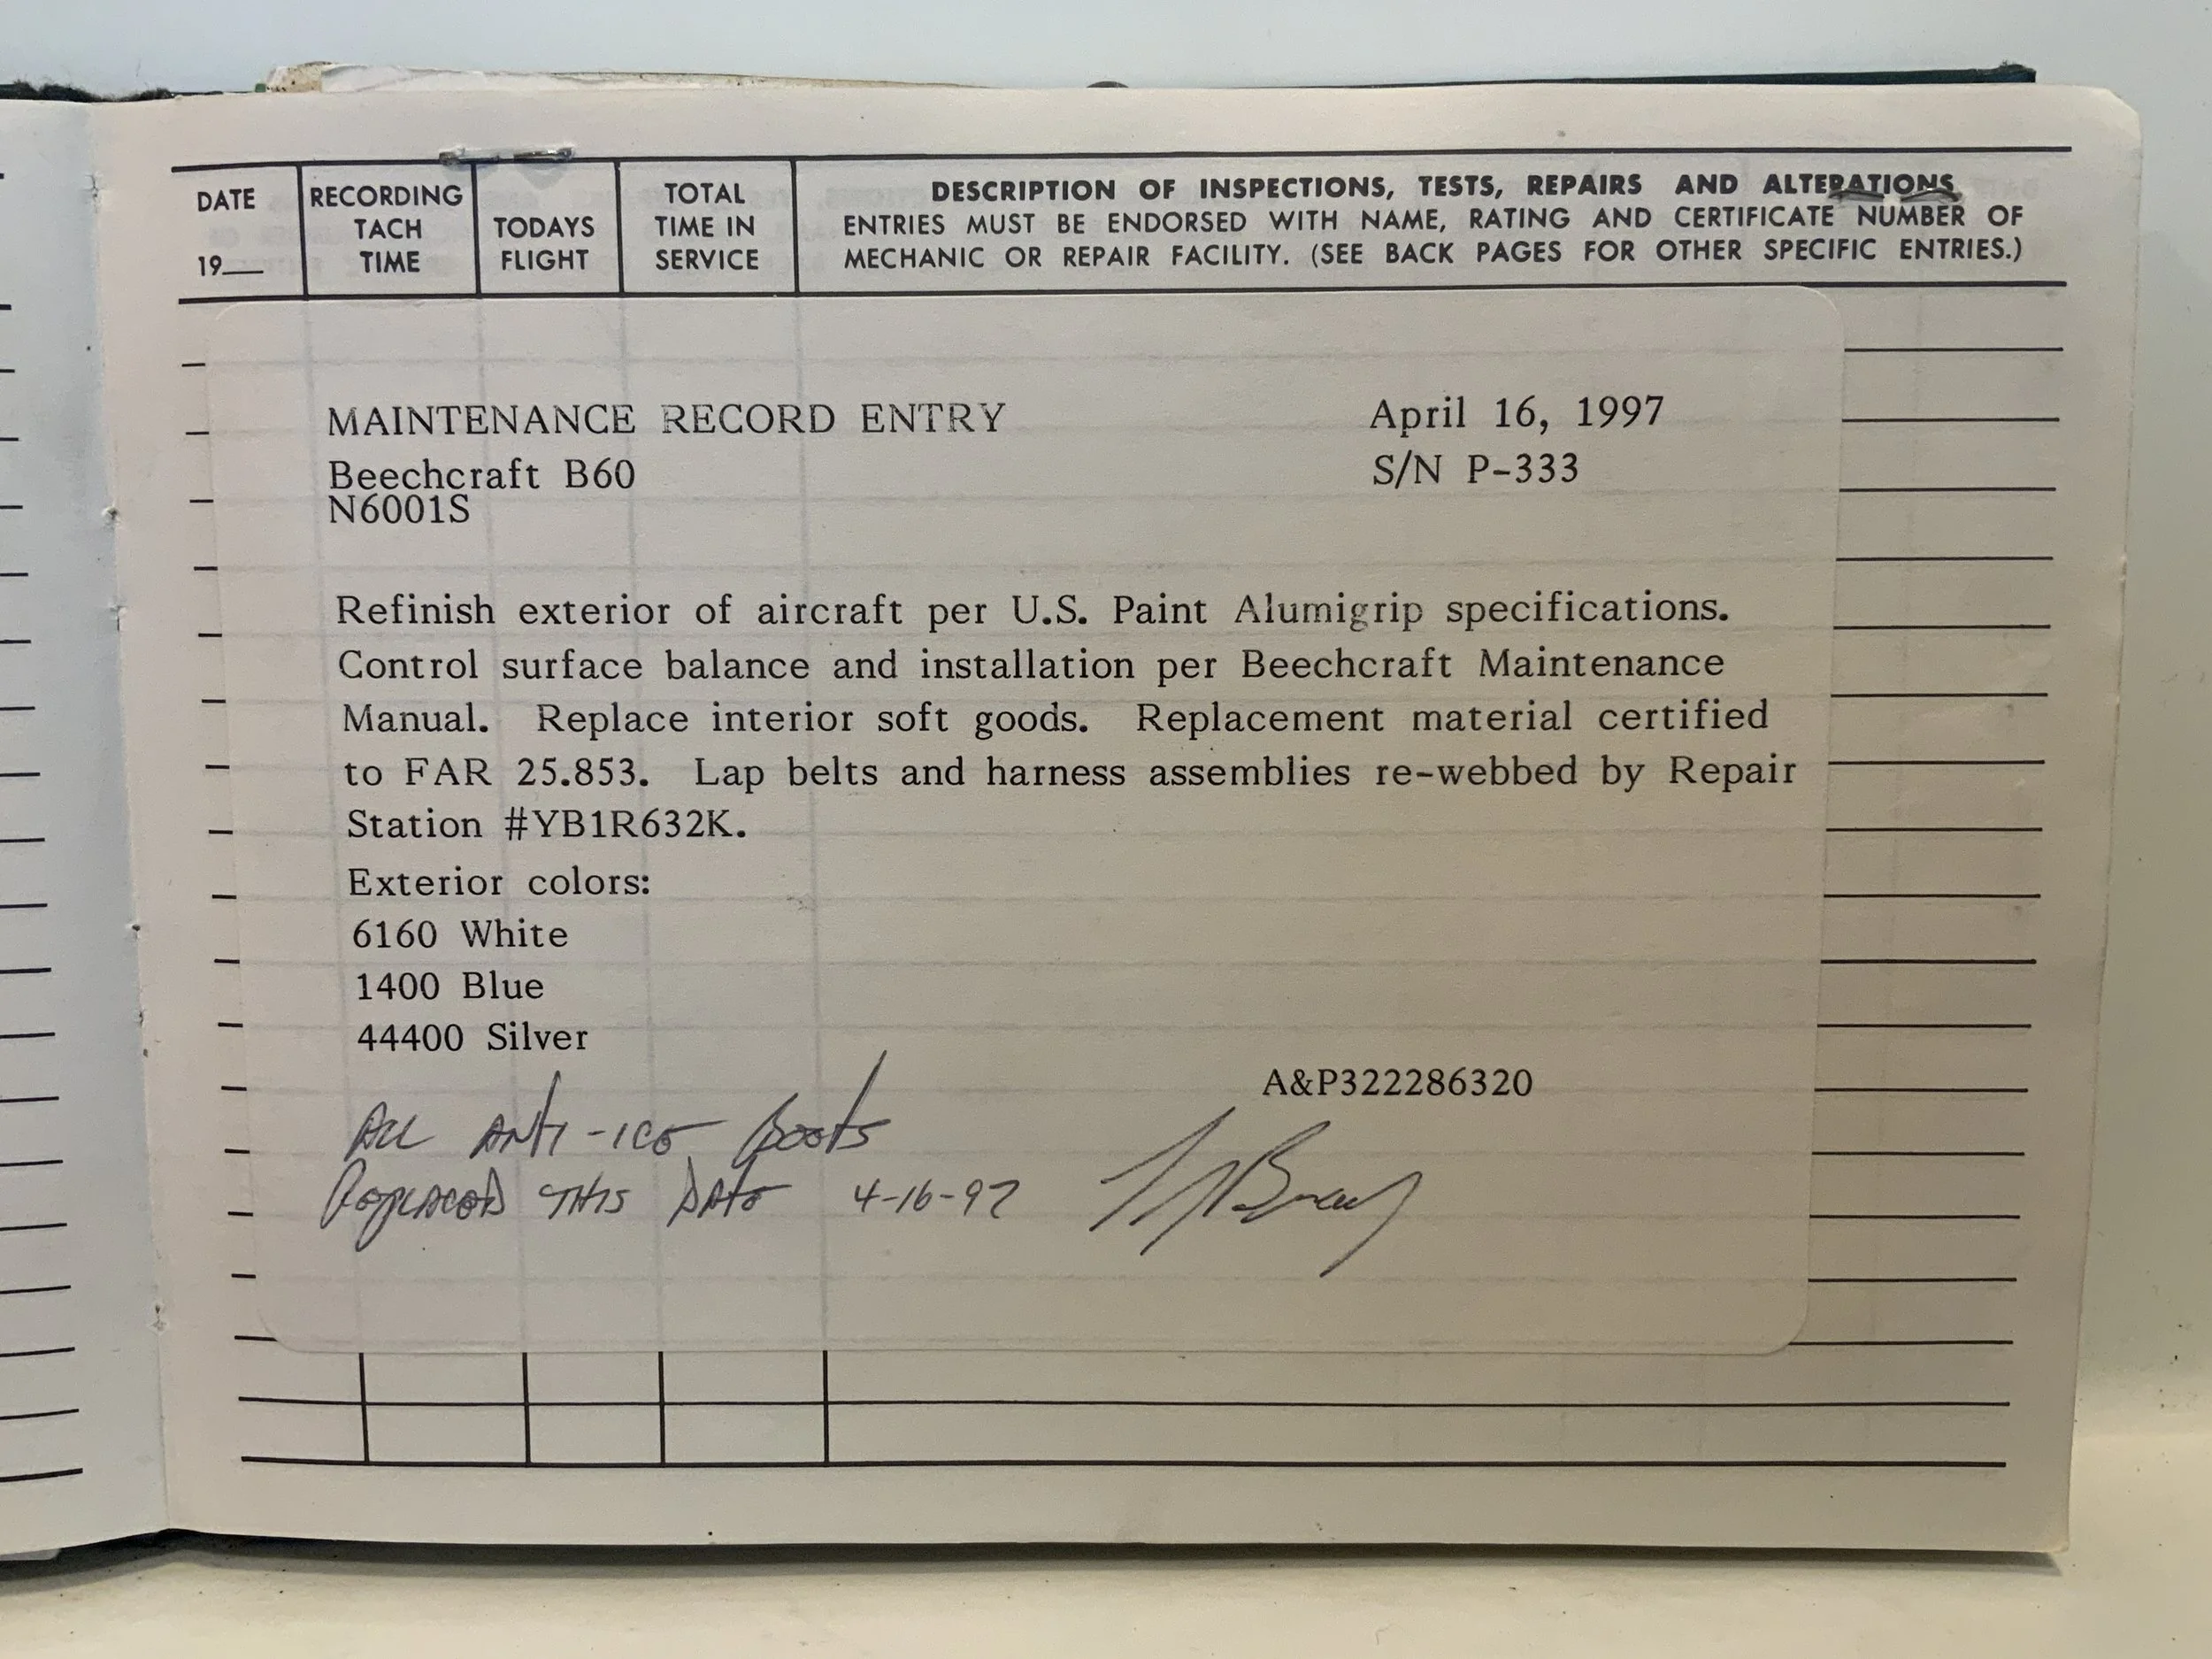 DATE
19__
RECORDING
TACH
TIME
TODAYS
FLIGHT
TOTAL
TIME IN
SERVICE
DESCRIPTION OF INSPECTIONS, TESTS, REPAIRS AND ALTERATIONS
ENTRIES MUST BE ENDORSED WITH NAME, RATING AND CERTIFICATE NUMBER OF
MECHANIC OR REPAIR FACILITY. (SEE BACK PAGES FOR OTHER SPECIFIC ENTRIES.)
MAINTENANCE RECORD ENTRY April 16, 1997
Beechcraft B60 S/N P-333
N6001S
Refinish exterior of aircraft per U.S. Paint Alumigrip specifications.
Control surface balance and installation per Beechcraft Maintenance
Manual. Replace interior soft goods. Replacement material certified
to FAR 25.853. Lap belts and harness assemblies re-webbed by Repair
Station #YB1R632K.
Exterior colors:
6160 White
1400 Blue
44400 Silver
A&P322286320
ALL ANTI-ICE BOOTS
REPLACED THIS DATE 4-16-97